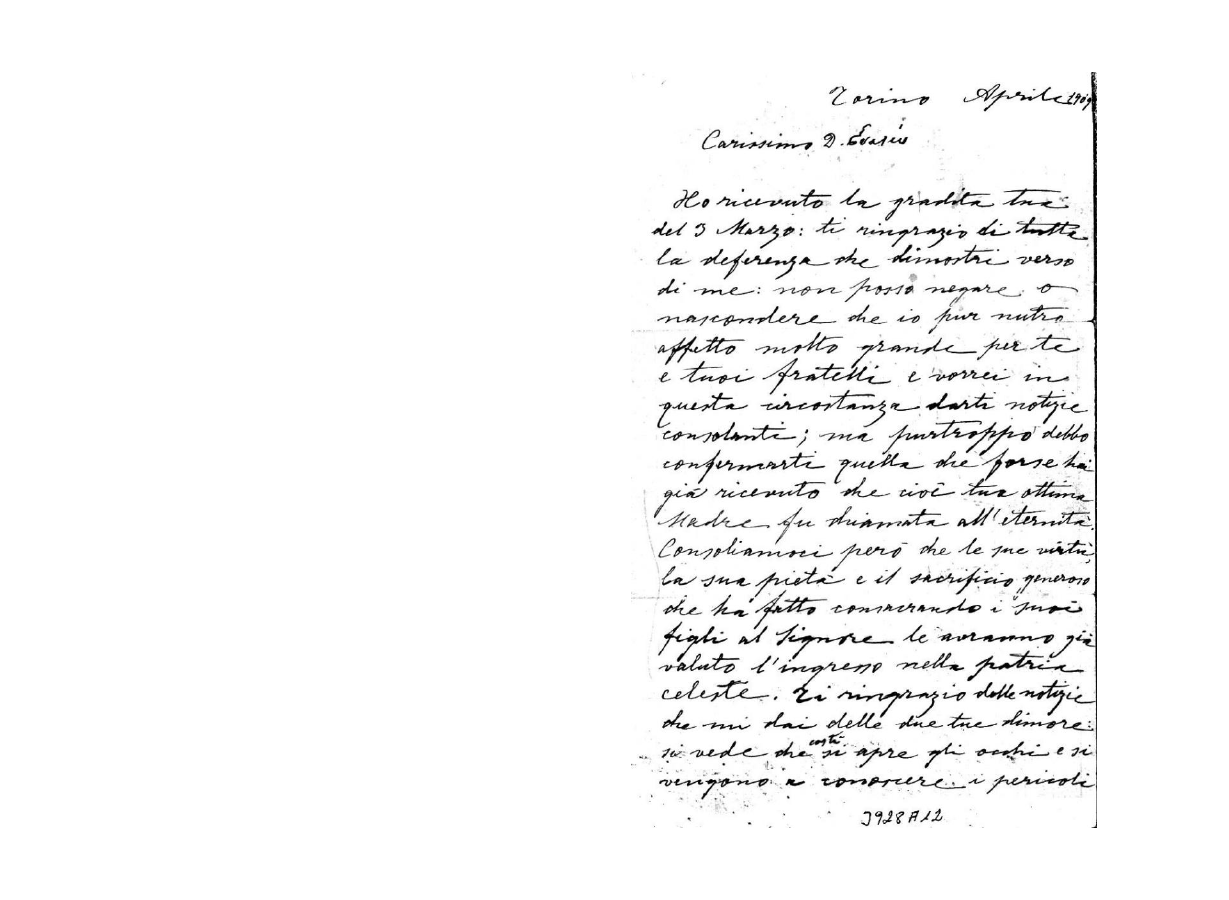 Torino Aprile 1909
Carissimo D. Evasio
Ho ricevuto la gradita tua
del 3 Marzo: ti ringrazio di tutta
la deferenza che dimostri verso
di me: non posso negare o
nascondere che io pur nutro
affetto molto grande per te
e tuoi fratelli e vorrei in
questa circostanza darti notizie
consolanti; ma purtroppo debbo
confermarti quella che forse hai
già ricevuto che cioè tua ottima
Madre fu chiamata all'eternità.
Consoliamoci però che le sue virtù,
la sua pietà e il sacrificio generoso
che ha fatto consacrando i suoi
figli al Signore le avranno già
valuto l'ingresso nella patria
celeste. Ti ringrazio delle notizie
che mi dai delle due tue dimore:
si vede che costì si apre gli occhi e si
vengono a conoscere i pericoli
J928A12